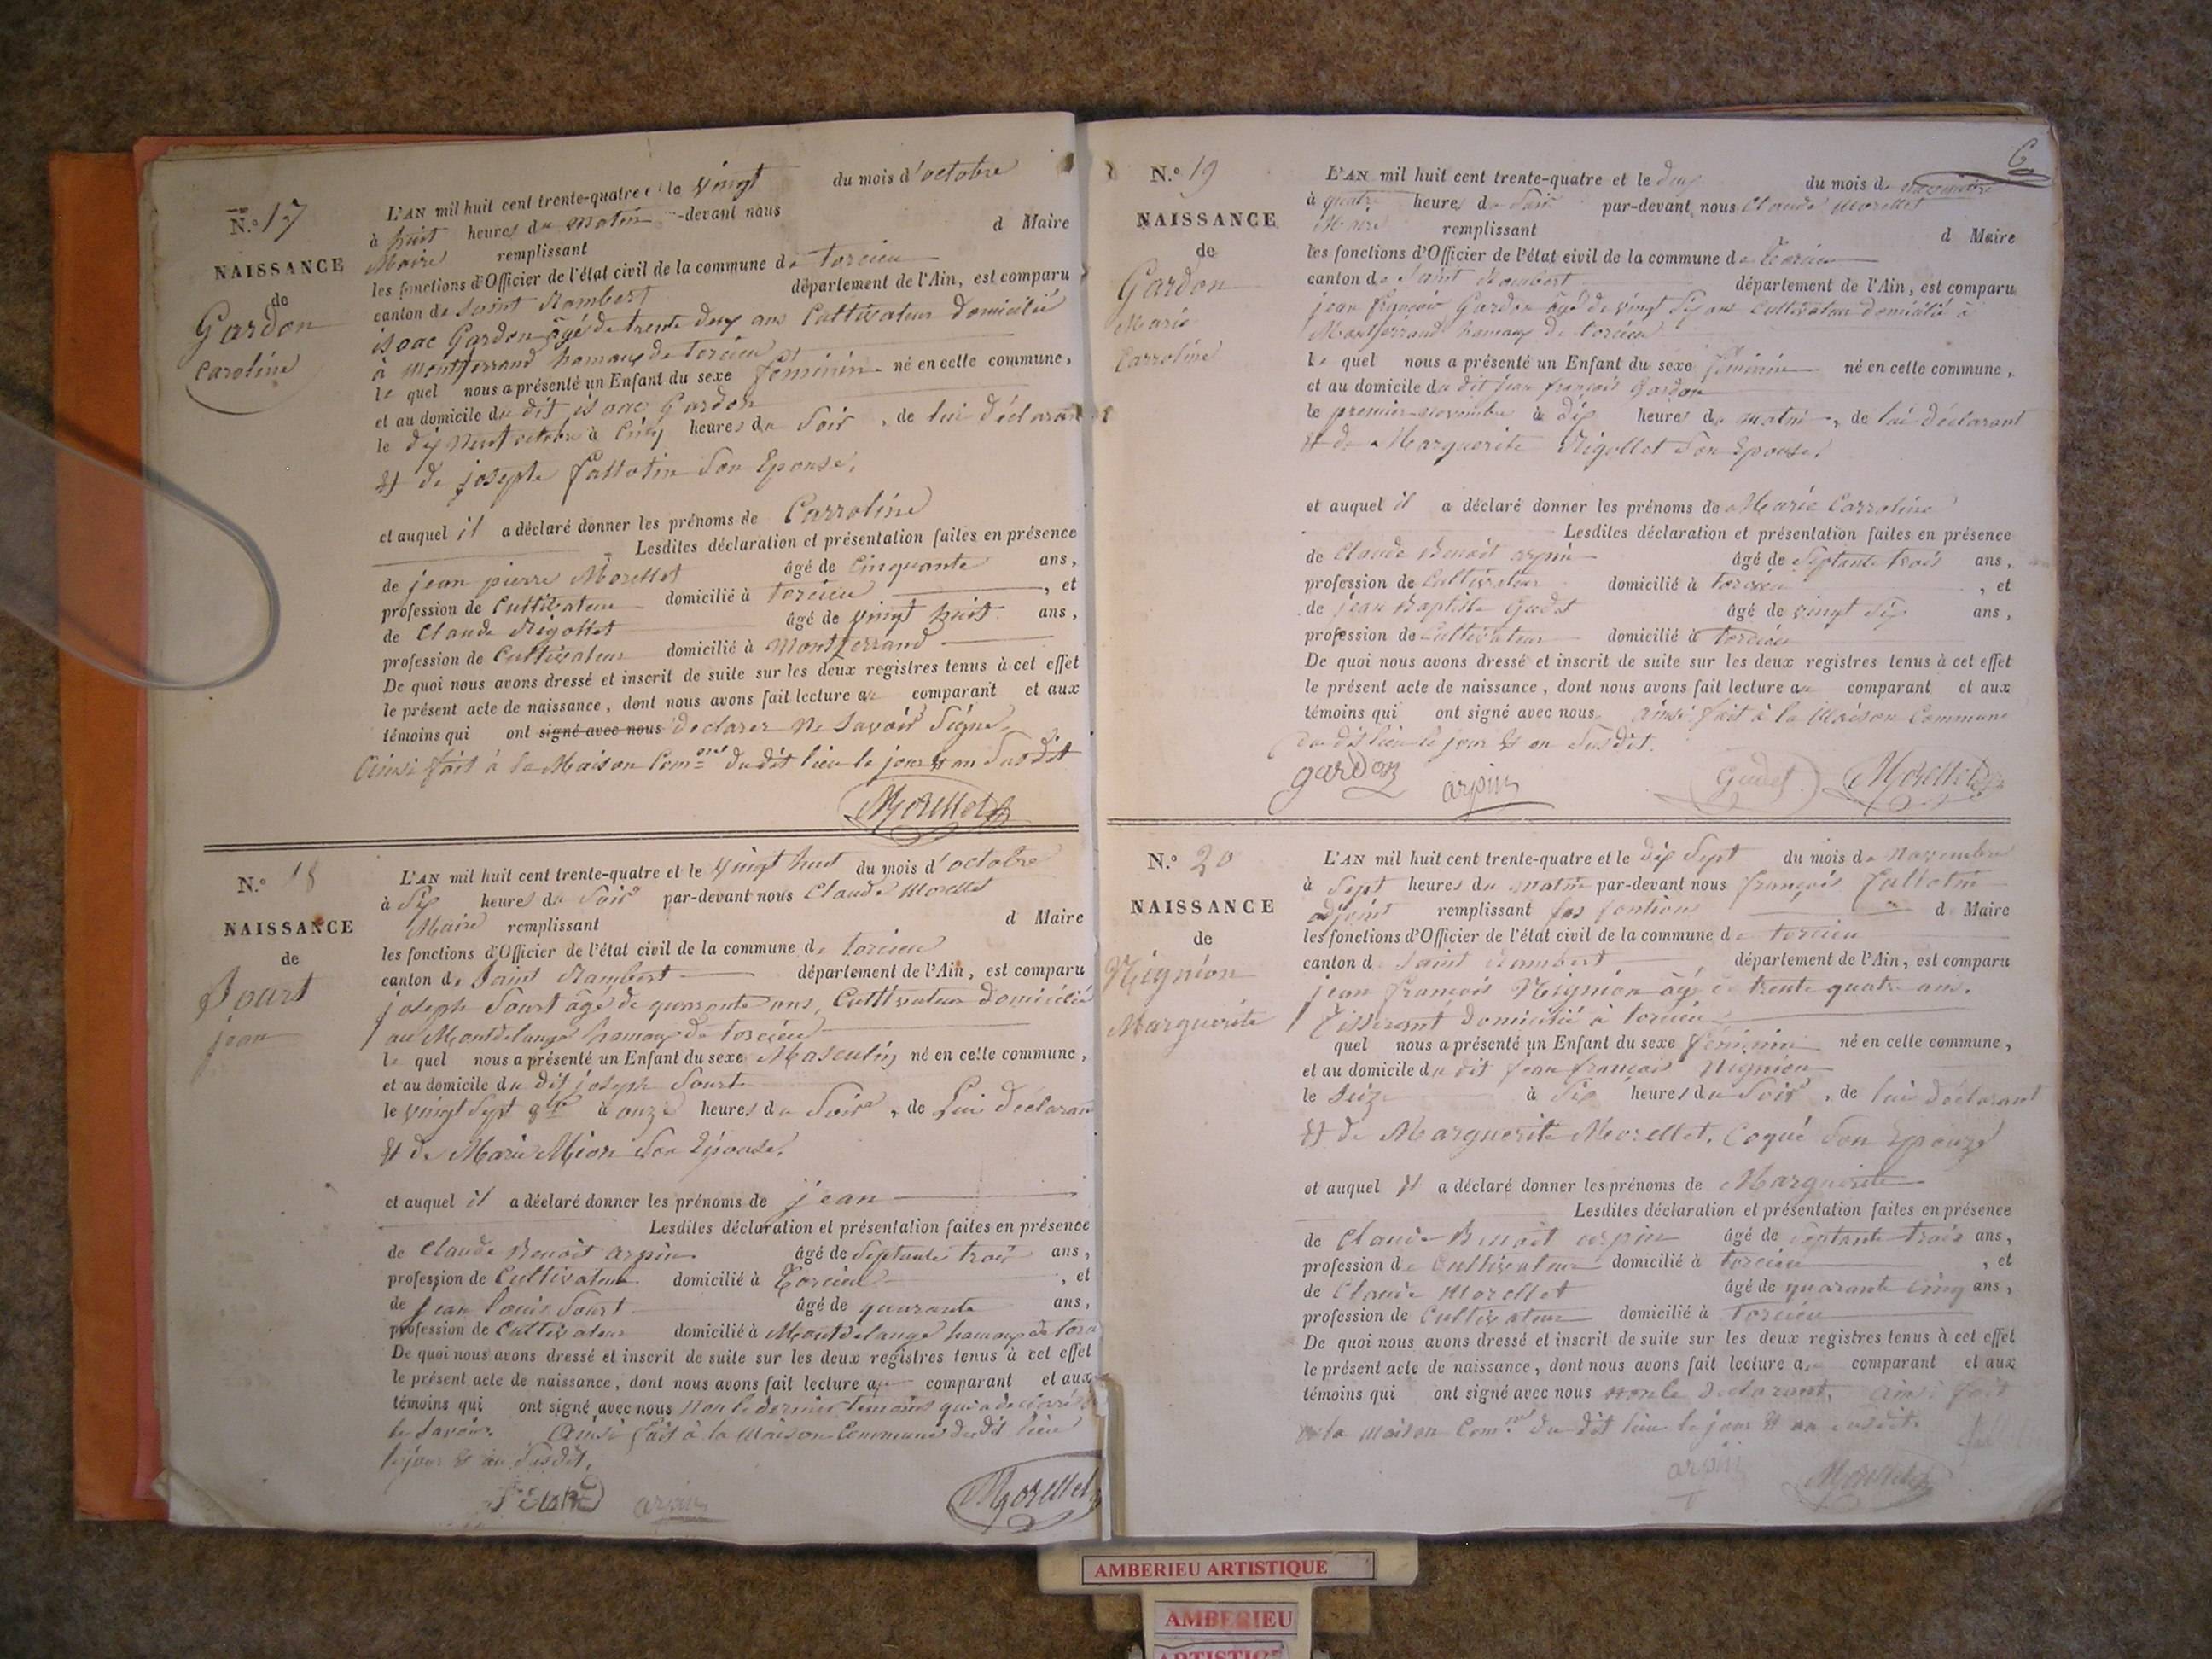 N.° 17
NAISSANCE
de
Gardon
Caroline
L'AN mil huit cent trente-quatre et le vingt du mois d'octobre
à huit heures du matin -devant nous
Maire remplissant d Maire
les fonctions d'Officier de l'état civil de la commune de torcieu
canton de Saint Rambert département de l'Ain, est comparu
isaac Gardon âgé de trente deux ans Cultivateur domicilié
à Montferrand hamaux de torcieu
le quel nous a présenté un Enfant du sexe féminin né en cette commune,
et au domicile du dit isaac Gardon
le dix neuf octobre à Cinq heures du Soir, de lui déclarant
Et de josephe fallotin Son Epouse,
et auquel il a déclaré donner les prénoms de Carroline
Lesdites déclaration et présentation faites en présence
de jean pierre Morellet âgé de Cinquante ans,
profession de Cultivateur domicilié à torcieu, et
de Claude Rigollet âgé de vingt huit ans,
profession de Cultivateur domicilié à Montferrand
De quoi nous avons dressé et inscrit de suite sur les deux registres tenus à cet effet
le présent acte de naissance, dont nous avons fait lecture au comparant et aux
témoins qui ont signé avec nous declarer ne Savoir Signe
Ainsi fait à la Maison Com.ne du dit lieu le jour et an Susdit
Morellet
N.° 18
NAISSANCE
de
Sourt
jean
L'AN mil huit cent trente-quatre et le vingt huit du mois d'octobre
à Six heures du Soir par-devant nous Claude Morellet
Maire remplissant d Maire
les fonctions d'Officier de l'état civil de la commune de torcieu
canton de Saint Rambert département de l'Ain, est comparu
joseph Sourt âgé de quarante ans, Cultivateur domicilié
au Montdelange hamaux de torcieu
le quel nous a présenté un Enfant du sexe Masculin né en cette commune,
et au domicile du dit joseph Sourt
le vingt Sept 8bre à onze heures du Soir, de Lui déclarant
Et de Marie Mion Son Epouse,
et auquel il a déclaré donner les prénoms de jean
Lesdites déclaration et présentation faites en présence
de Claude Benoit arpin âgé de Septante trois ans,
profession de Cultivateur domicilié à Torcieu, et
de Jean Louis Sourt âgé de quarante ans,
profession de Cultivateur domicilié à Montdelange hamaux de torci
De quoi nous avons dressé et inscrit de suite sur les deux registres tenus à cet effet
le présent acte de naissance, dont nous avons fait lecture au comparant et aux
témoins qui ont signé avec nous Non le dernier temoins qui a declaré
le Savoir. Ainsi fait à la Maison Commune du dit lieu
le jour et an Susdit.
arpin Morellet
N.° 19
NAISSANCE
de
Gardon
Marie
Carroline
L'AN mil huit cent trente-quatre et le deux du mois de novembre
à quatre heures du Soir par-devant nous Claude Morellet
Maire remplissant d Maire
les fonctions d'Officier de l'état civil de la commune de torcieu
canton de Saint Rambert département de l'Ain, est comparu
jean françois Gardon âgé de vingt Six ans Cultivateur domicilié à
Montferrand hamaux de torcieu
le quel nous a présenté un Enfant du sexe féminin né en cette commune,
et au domicile du dit jean françois Gardon
le premier novembre à dix heures du matin, de lui déclarant
Et de Marguerite Rigollet Son Epouse,
et auquel il a déclaré donner les prénoms de Marie Carroline
Lesdites déclaration et présentation faites en présence
de Claude Benoit arpin âgé de Septante trois ans,
profession de Cultivateur domicilié à torcieu, et
de jean Baptiste Gudet âgé de vingt Six ans,
profession de Cultivateur domicilié à torcieu
De quoi nous avons dressé et inscrit de suite sur les deux registres tenus à cet effet
le présent acte de naissance, dont nous avons fait lecture au comparant et aux
témoins qui ont signé avec nous ainsi fait à la Maison Commune
du dit lieu le jour Et an Susdit.
gardon arpin Gudet Morellet
N.° 20
NAISSANCE
de
Nignion
Marguerite
L'AN mil huit cent trente-quatre et le dix Sept du mois de Novembre
à Sept heures du matin par-devant nous françois fallotin
adjoint remplissant les fontions d Maire
les fonctions d'Officier de l'état civil de la commune de torcieu
canton de Saint Rambert département de l'Ain, est comparu
jean françois Nignion âgé de trente quatre ans.
Tisserant domicilié à torcieu
quel nous a présenté un Enfant du sexe féminin né en cette commune,
et au domicile du dit jean françois Nignion
le Seize à Six heures du Soir, de lui déclarant
Et de Marguerite Morellet, Coqué Son Epouze
et auquel il a déclaré donner les prénoms de Marguerite
Lesdites déclaration et présentation faites en présence
de Claude Benoit arpin âgé de Septante trois ans,
profession de Cultivateur domicilié à torcieu, et
de Claude Morellet âgé de quarante Cinq ans,
profession de Cultivateur domicilié à torcieu
De quoi nous avons dressé et inscrit de suite sur les deux registres tenus à cet effet
le présent acte de naissance, dont nous avons fait lecture au comparant et aux
témoins qui ont signé avec nous non le declarant, Ainsi fait
à la Maison Com.ne du dit lieu le jour Et an susdit.
arpin Morellet
AMBERIEU ARTISTIQUE
AMBERIEU
ARTISTIQUE